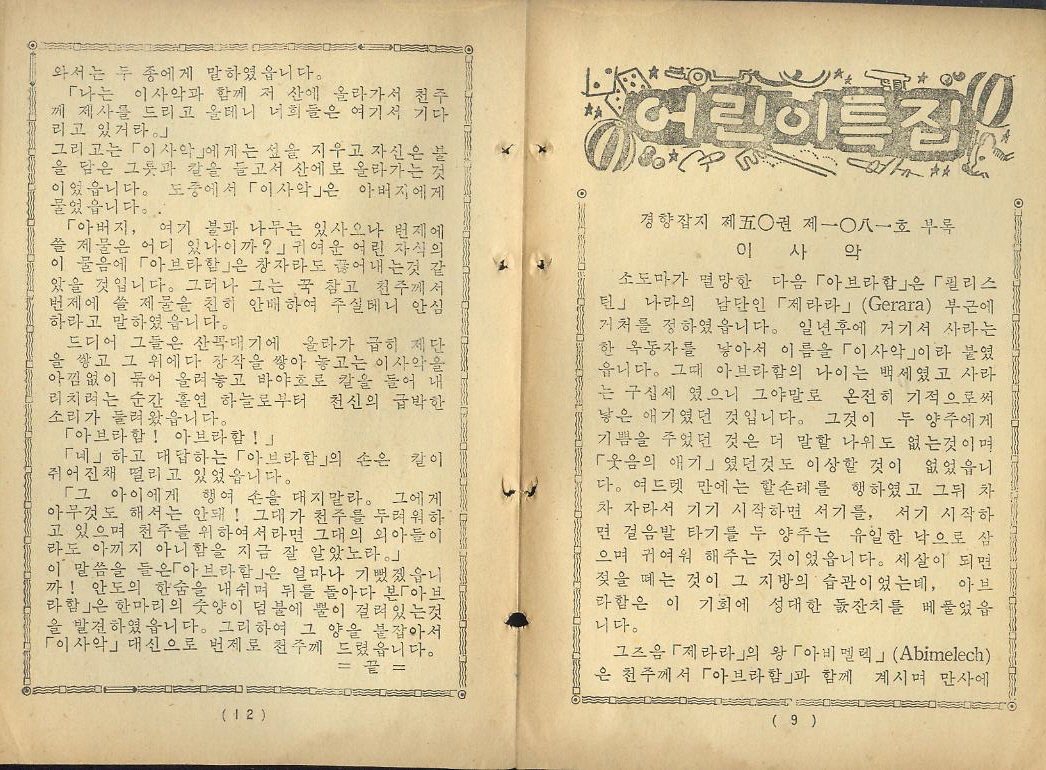 와서는 두 종에게 말하였읍니다。
「나는 이사악과 함께 저 산에 올라가서 천주
께 제사를 드리고 올테니 너희들은 여기서 기다
리고 있거라。」
그리고는「이사악」에게는 섶을 지우고 자신은 불
을 담은 그릇과 칼을 들고서 산에로 올라가는 것
이었읍니다。 도중에서「이사악」은 아버지에게
물었읍니다。
「아버지, 여기 불과 나무는 있사오나 번제에
쓸 제물은 어디 있나이까?」귀여운 어린 자식의
이 물음에「아브라함」은 창자라도 끊어내는것 같
았을 것입니다。 그러나 그는 꾹 참고 천주께서
번제에 쓸 제물을 친히 안배하여 주실테니 안심
하라고 말하였읍니다。
드디어 그들은 산꼭대기에 올라가 급히 제단
을 쌓고 그 위에다 장작을 쌓아 놓고는 이사악을
아낌없이 묶어 올려놓고 바야흐로 칼을 들어 내
리치려는 순간 흘연 하늘로부터 천신의 급박한
소리가 들려왔읍니다。
「아브라함! 아브라함!」
「네」하고 대답하는「아브라함」의 손은 칼이
쥐어진채 떨리고 있었읍니다。
「그 아이에게 행여 손을 대지말라。 그에게
아무것도 해서는 안돼! 그대가 천주를 두려워하
고 있으며 천주를 위하여서라면 그대의 외아들이
라도 아끼지 아니함을 지금 잘 알았노라。」
이 말씀을 들은「아브라함」은 얼마나 기뻤겠읍니
까! 안도의 한숨을 내쉬며 뒤를 돌아다 본「아브
라함」은 한마리의 숫양이 덤불에 뿔이 걸려있는것
을 발견하였읍니다。 그리하여 그 양을 붙잡아서
「이사악」대신으로 번제로 천주께 드렸읍니다。
= 끝 =
(12)
어린이특집
경향잡지 제五〇권 제一〇八一호 부록
이 사 악
소도마가 멸망한 다음「아브라함」은「필리스
틴」나라의 남단인「제라라」(Gerara) 부근에
거처를 정하였읍니다。 일년후에 거기서 사라는
한 옥동자를 낳아서 이름을「이사악」이라 붙였
읍니다。 그때 아브라함의 나이는 백세였고 사라
는 구십세 였으니 그야말로 온전히 기적으로써
낳은 애기였던 것입니다。 그것이 두 양주에게
기쁨을 주었던 것은 더 말할 나위도 없는것이며
「웃음의 애기」였던것도 이상할 것이 없었읍니
다。 여드렛 만에는 할손례를 행하였고 그뒤 차
차 자라서 기기 시작하면 서기를, 서기 시작하
면 걸음발 타기를 두 양주는 유일한 낙으로 삼
으며 귀여워 해주는 것이었읍니다。 세살이 되면
젖을 떼는 것이 그 지방의 습관이었는데, 아브
라함은 이 기회에 성대한 돐잔치를 베풀었읍
니다。
그즈음「제라라」의 왕「아비멜렉」(Abimelech)
은 천주께서「아브라함」과 함께 계시며 만사에
( 9 )